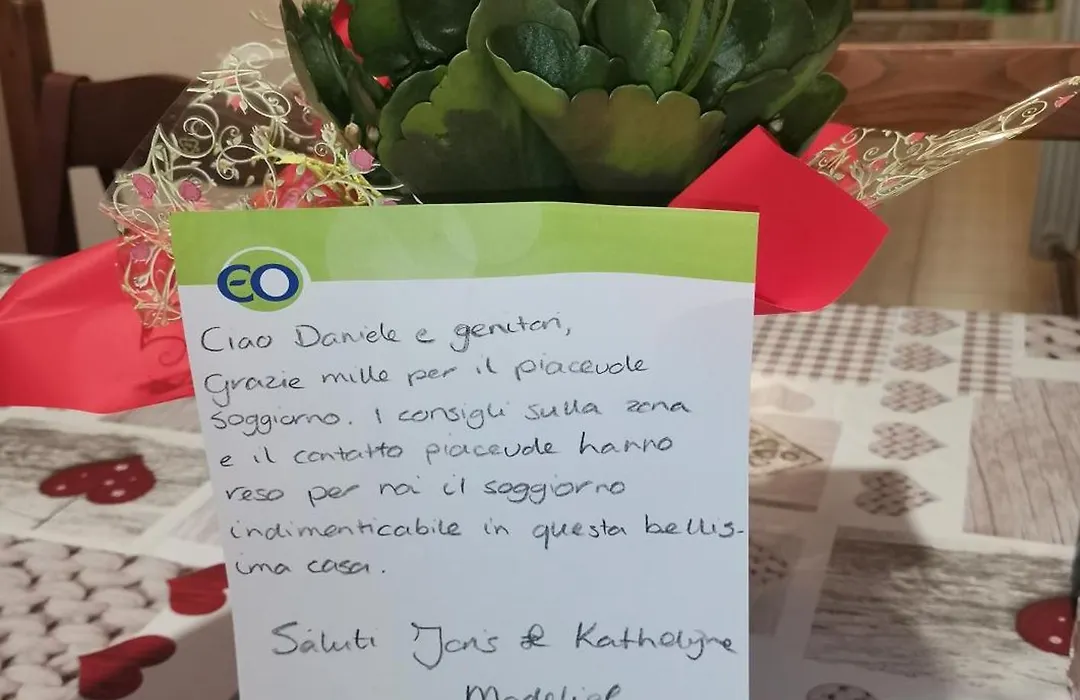 EO
Ciao Daniele e genitori,
Grazie mille per il piacevole
soggiorno. I consigli sulla zona
e il contatto piacevole hanno
reso per noi il soggiorno
indimenticabile in questa bellis-
ima casa.
Saluti Joris & Katholijne